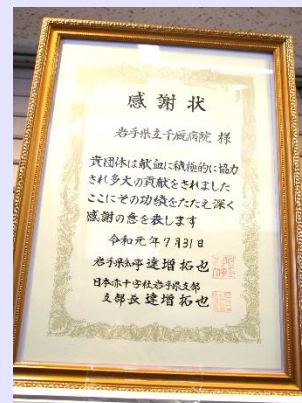 感謝状
岩手県立千厩病院 様
貴団体は献血に積極的に協力
され多大の貢献をされました
ここにその功績をたたえ深く
感謝の意を表します
令和元年7月31日
岩手県知事 達増拓也
日本赤十字社岩手県支部
支部長 達増拓也